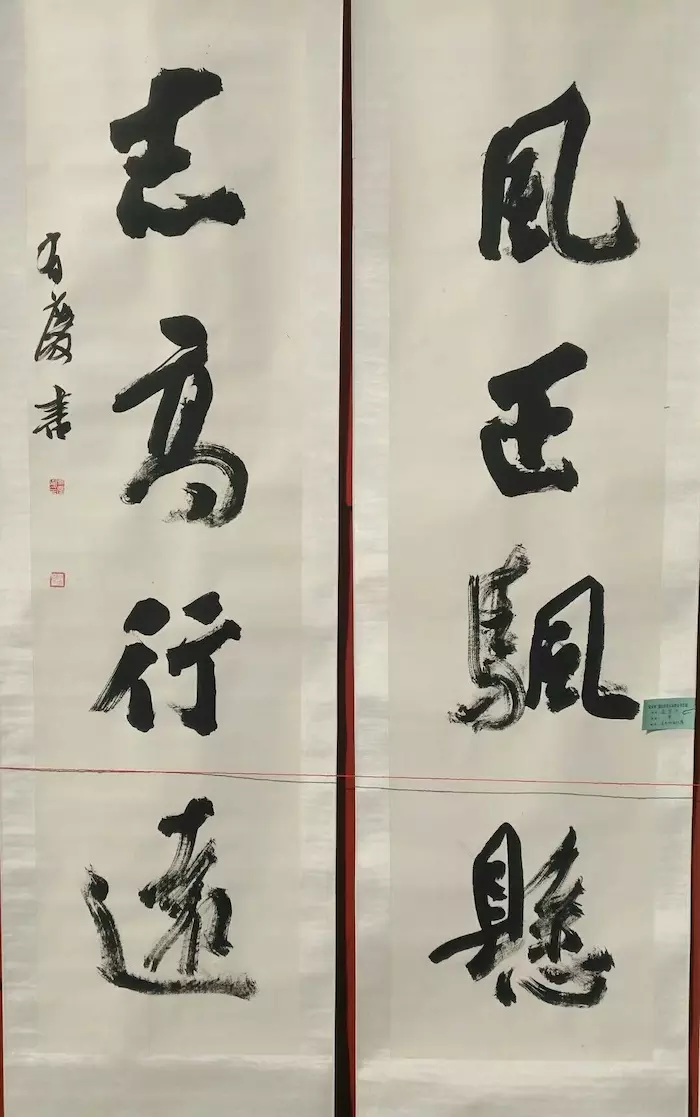 風正颿懸
志高行遠
有慶書